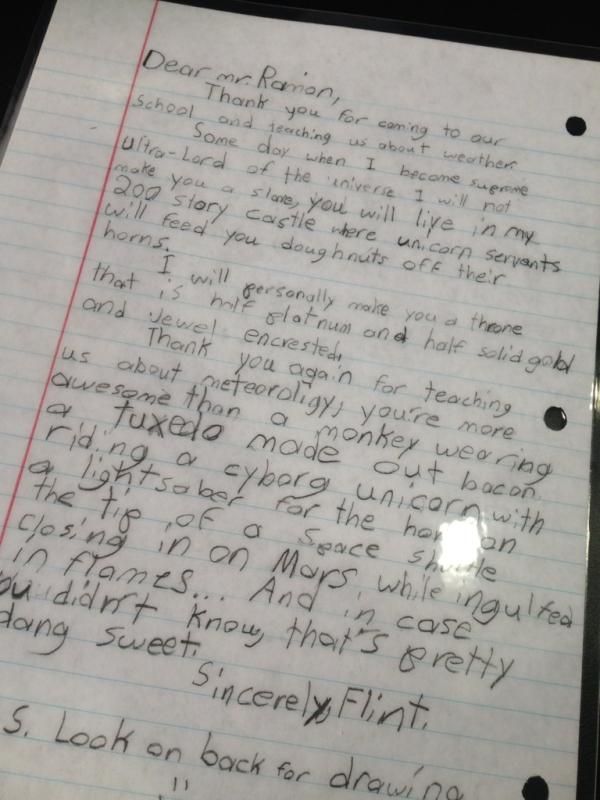 Dear mr. Ramon,
Thank you for coming to our
school and teaching us about weather.
Some day when I become supreme
ultra-Lord of the universe I will not
make you a slave, you will live in my
200 story castle where unicorn servants
will feed you doughnuts off their
horns.
I will personally make you a throne
that is half platnum and half solid gold
and jewel encrested.
Thank you again for teaching
us about meteoroligy, you're more
awesome than a monkey wearing
a tuxedo made out bacon
riding a cyborg unicorn with
a lightsaber for the on
the tip of a space
closing in on Mars, while ingulfed
in flames... And in case
ou didn't know, that's pretty
dang sweet.
Sincerely, Flint.
S. Look on back for drawing